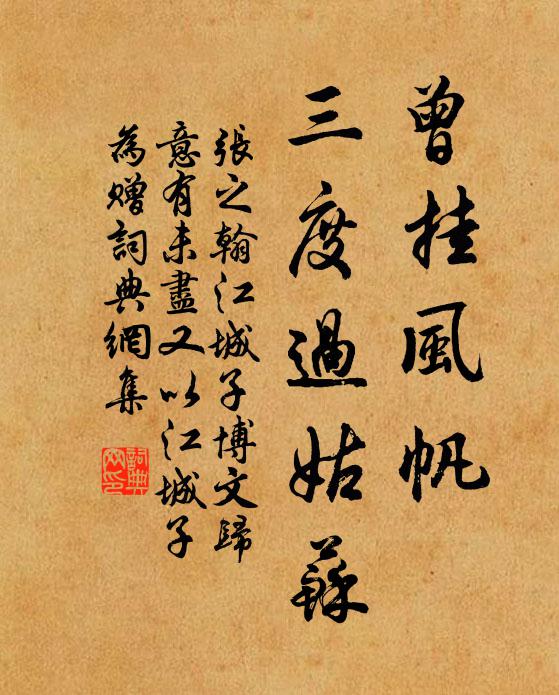 曾挂風帆
三度過姑蘇
張之翰江城子博文歸
意有未盡又以江城子
為赠詞典網集
詞典网印